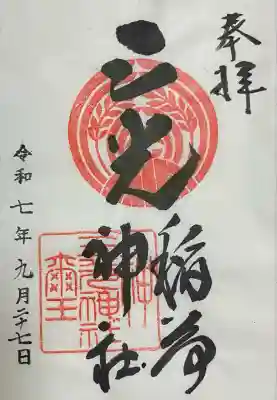 奉拝
三光
稲荷
神社
令和七年九月二十七日